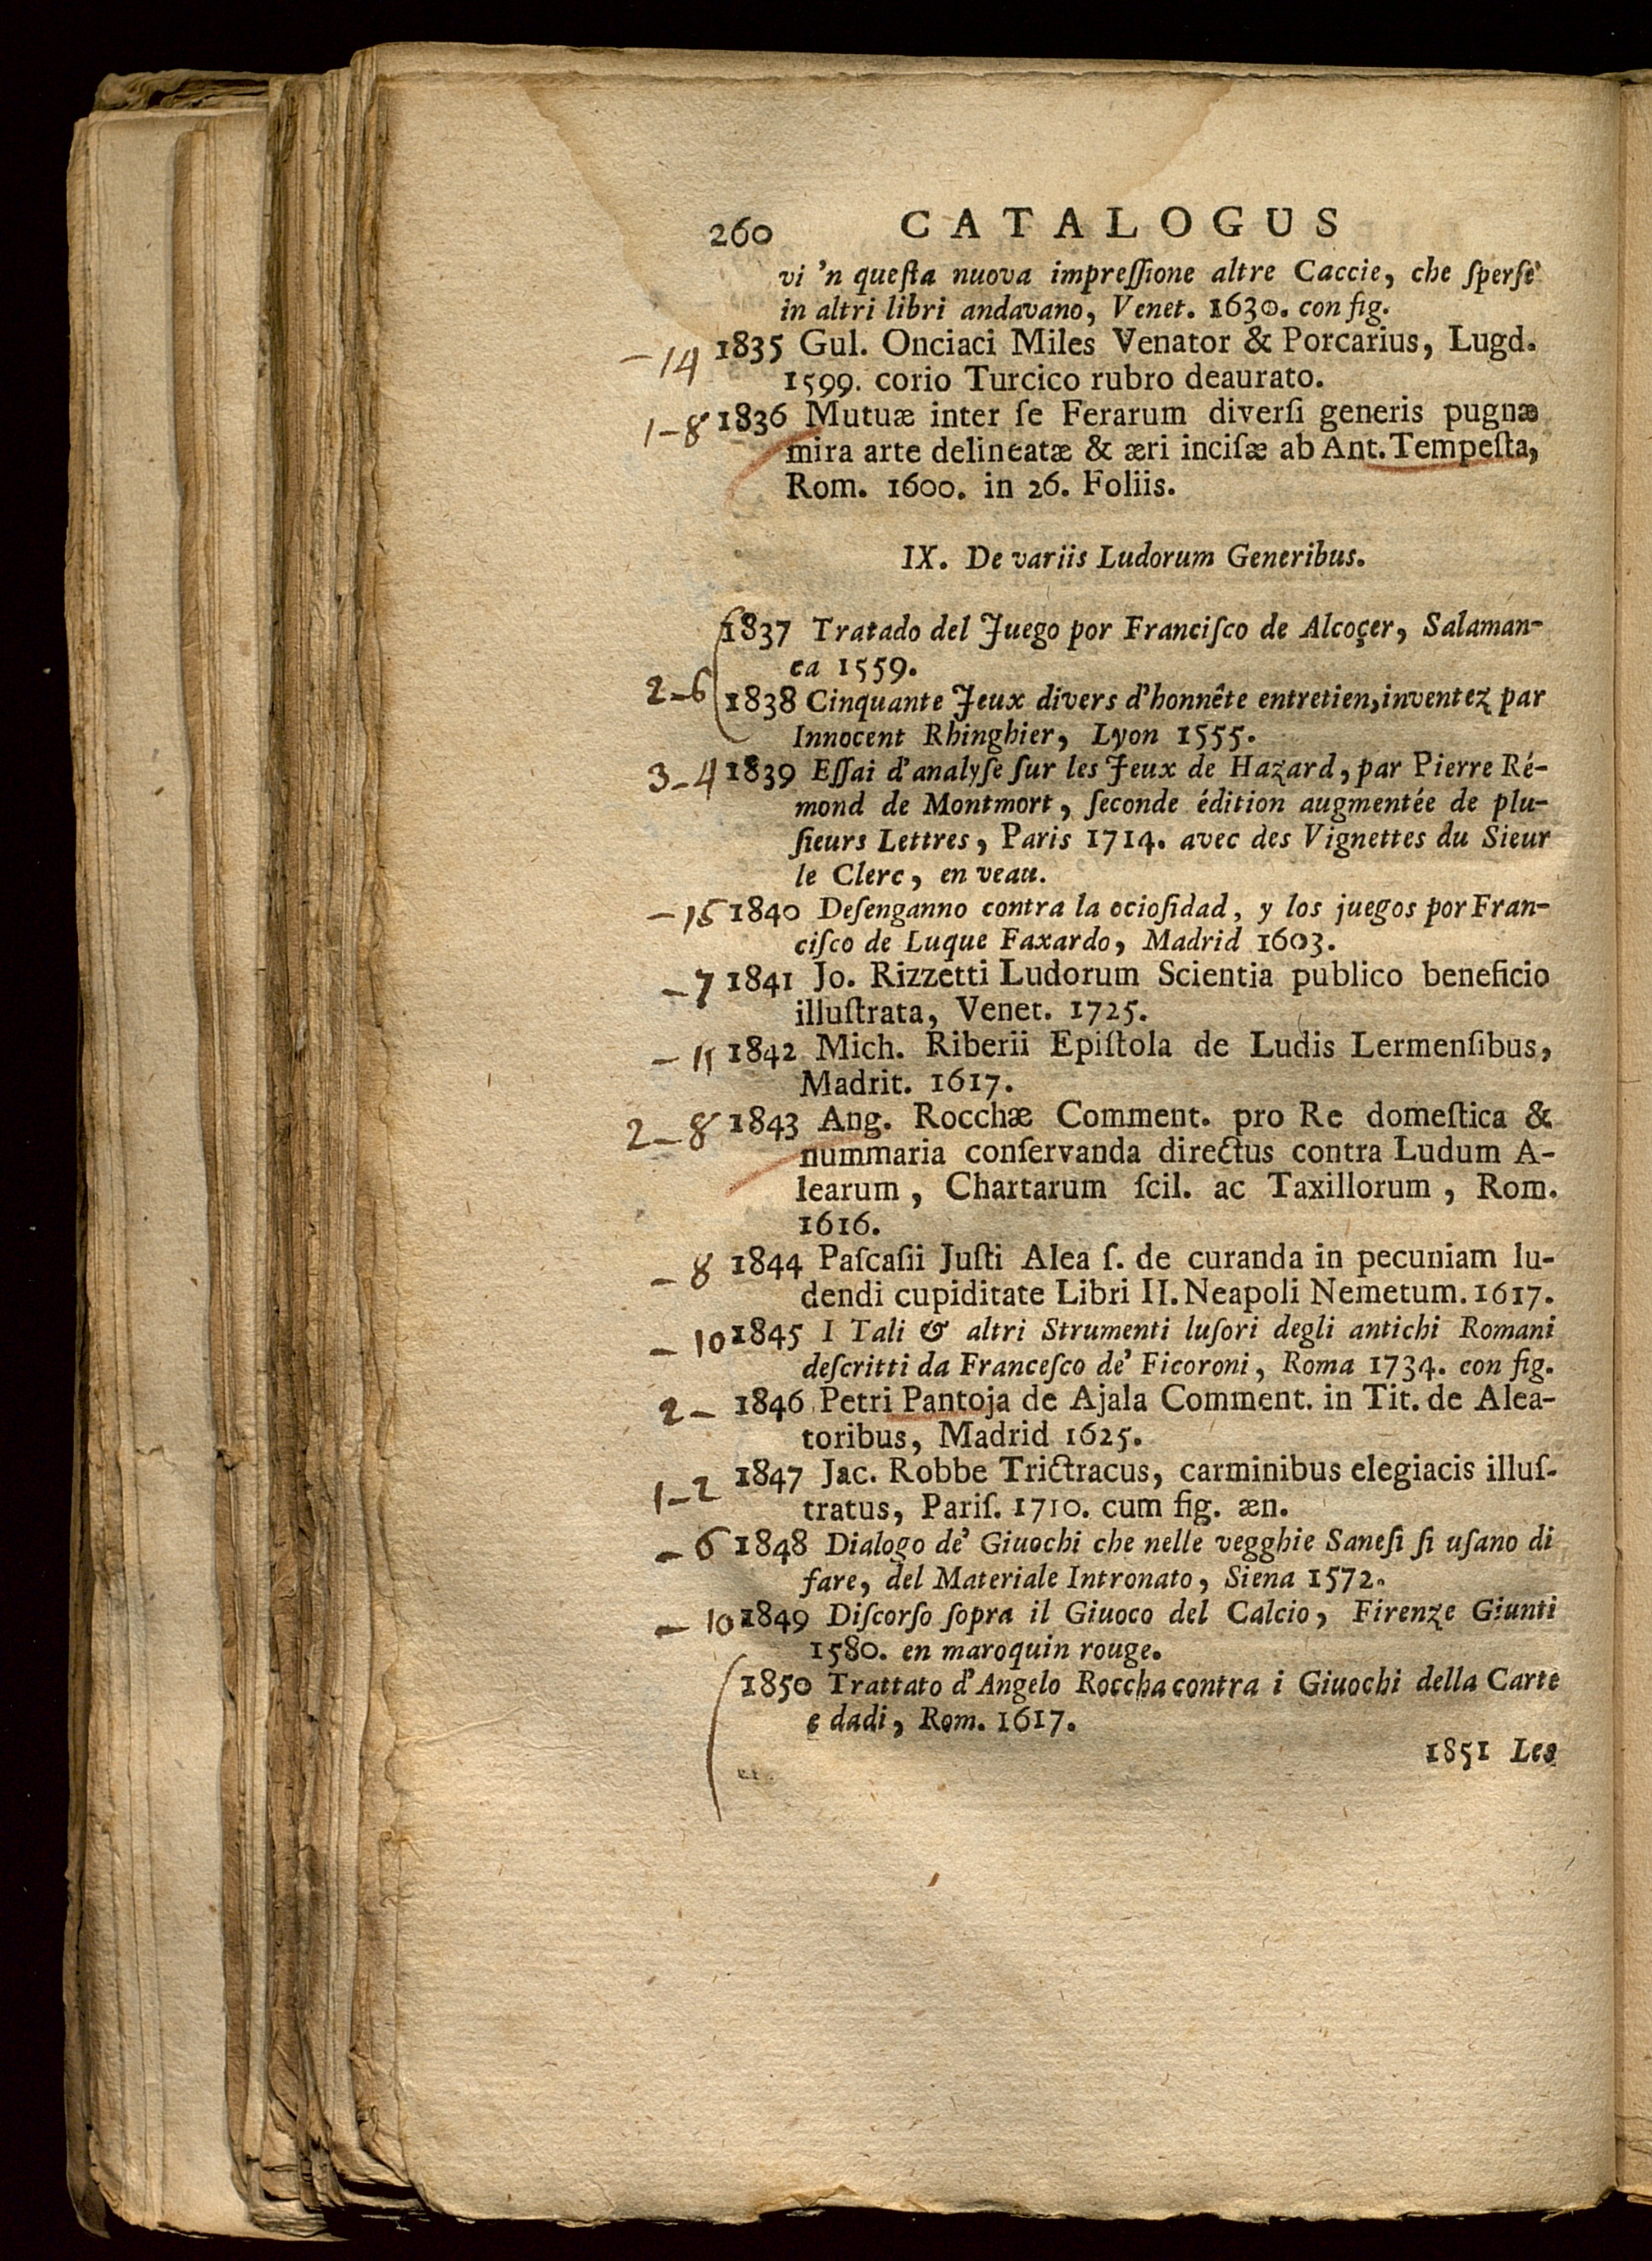 260 CATALOGUS
vi 'n queſta nuova impreſſione altre Caccie, che ſperſe
in altri libri andavano, Venet. 1630. con fig.
– 14 1835 Gul. Onciaci Miles Venator & Porcarius, Lugd.
1599. corio Turcico rubro deaurato.
1 – 8 1836 Mutuæ inter ſe Ferarum diverſi generis pugnæ
mira arte delineatæ & æri inciſæ ab Ant. Tempeſta,
Rom. 1600. in 26. Foliis.
IX. De variis Ludorum Generibus.
1837 Tratado del Juego por Franciſco de Alcoçer, Salaman-
ca 1559.
2 – 6 1838 Cinquante Jeux divers d'honnête entretien, inventez par
Innocent Rhinghier, Lyon 1555.
3 – 4 1839 Eſſai d'analyſe ſur les Jeux de Hazard, par Pierre Ré-
mond de Montmort, ſeconde édition augmentée de plu-
ſieurs Lettres, Paris 1714. avec des Vignettes du Sieur
le Clerc, en veau.
– 15 1840 Deſenganno contra la ocioſidad, y los juegos por Fran-
ciſco de Luque Faxardo, Madrid 1603.
– 7 1841 Jo. Rizzetti Ludorum Scientia publico beneficio
illuſtrata, Venet. 1725.
– 11 1842 Mich. Riberii Epiſtola de Ludis Lermenſibus,
Madrit. 1617.
2 – 8 1843 Ang. Rocchæ Comment. pro Re domeſtica &
nummaria conſervanda directus contra Ludum A-
learum, Chartarum ſcil. ac Taxillorum, Rom.
1616.
– 8 1844 Paſcaſii Juſti Alea ſ. de curanda in pecuniam lu-
dendi cupiditate Libri II. Neapoli Nemetum. 1617.
– 10 1845 I Tali & altri Strumenti luſori degli antichi Romani
deſcritti da Franceſco de' Ficoroni, Roma 1734. con fig.
2 – 1846 Petri Pantoja de Ajala Comment. in Tit. de Alea-
toribus, Madrid 1625.
1 – 2 1847 Jac. Robbe Trictracus, carminibus elegiacis illuſ-
tratus, Pariſ. 1710. cum fig. æn.
– 6 1848 Dialogo de' Giuochi che nelle vegghie Saneſi ſi uſano di
fare, del Materiale Intronato, Siena 1572.
– 10 1849 Diſcorſo ſopra il Giuoco del Calcio, Firenze Giunti
1580. en maroquin rouge.
1850 Trattato d'Angelo Roccha contra i Giuochi della Carte
e dadi, Rom. 1617.
1851 Les